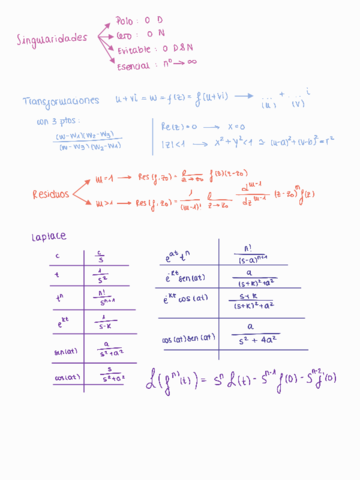 Singularidades
Polo: 0 D
Cero: 0 N
Evitable: 0 D&N
Esencial: nº → ∞
Transformaciones u+vi = w = f(z) = f(u+vi) → (u) + (v) i
con 3 ptos:
(w-w1)(w2-w3) / (w-w3)(w2-w1)
Re(z)=0 → x=0
|z|<1 → x²+y²<1 → (u-a)²+(v-b)²=r²
Residuos
m=1 → Res(f,z0) = lim z→z0 f(z)(z-z0)
m>1 → Res(f,z0) = 1/(m-1)! lim z→z0 d^(m-1)/dz^(m-1) (z-z0)^m f(z)
Laplace
c | c/s
t | 1/s²
t^n | n!/s^(n+1)
e^(kt) | 1/(s-k)
sen(at) | a/(s²+a²)
cos(at) | s/(s²+a²)
e^(at) t^n | n!/(s-a)^(n+1)
e^(-kt) sen(at) | a/((s+k)²+a²)
e^(-kt) cos(at) | (s+k)/((s+k)²+a²)
cos(at)sen(at) | a/(s²+4a²)
L(f^(n)(t)) = s^n L(t) - s^(n-1) f(0) - s^(n-2) f'(0)